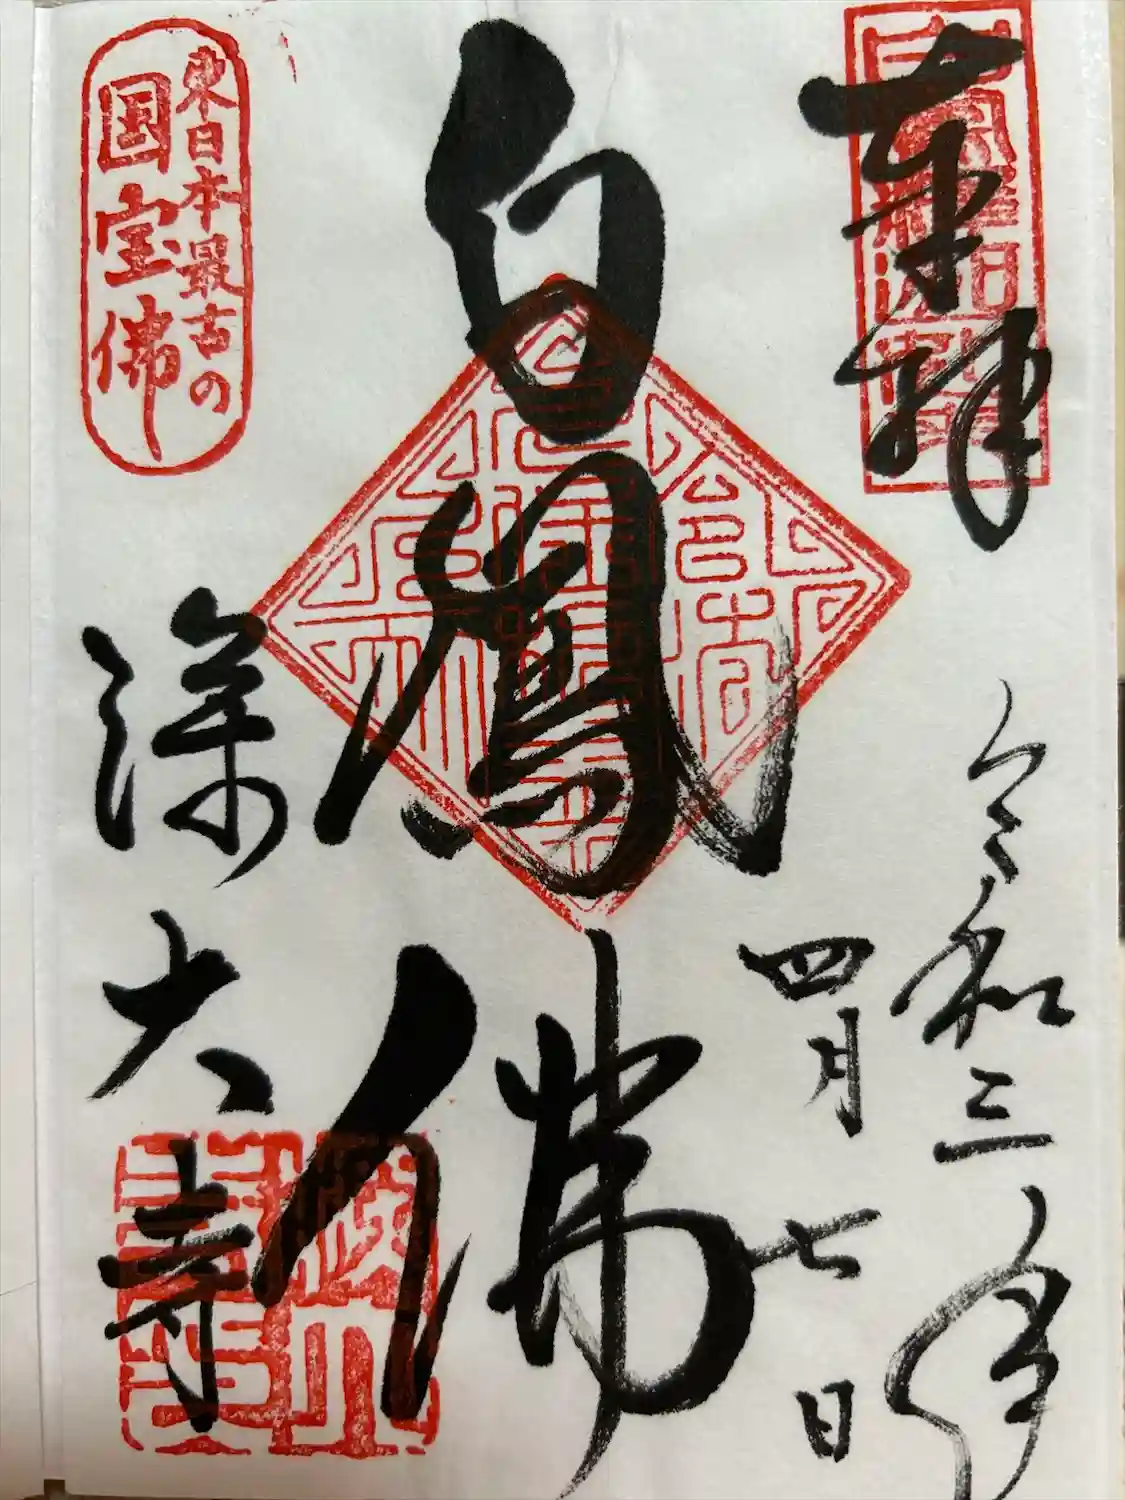 奉拝
令和三年
四月七日
白鳳佛
深大寺
東日本最古の
国宝佛